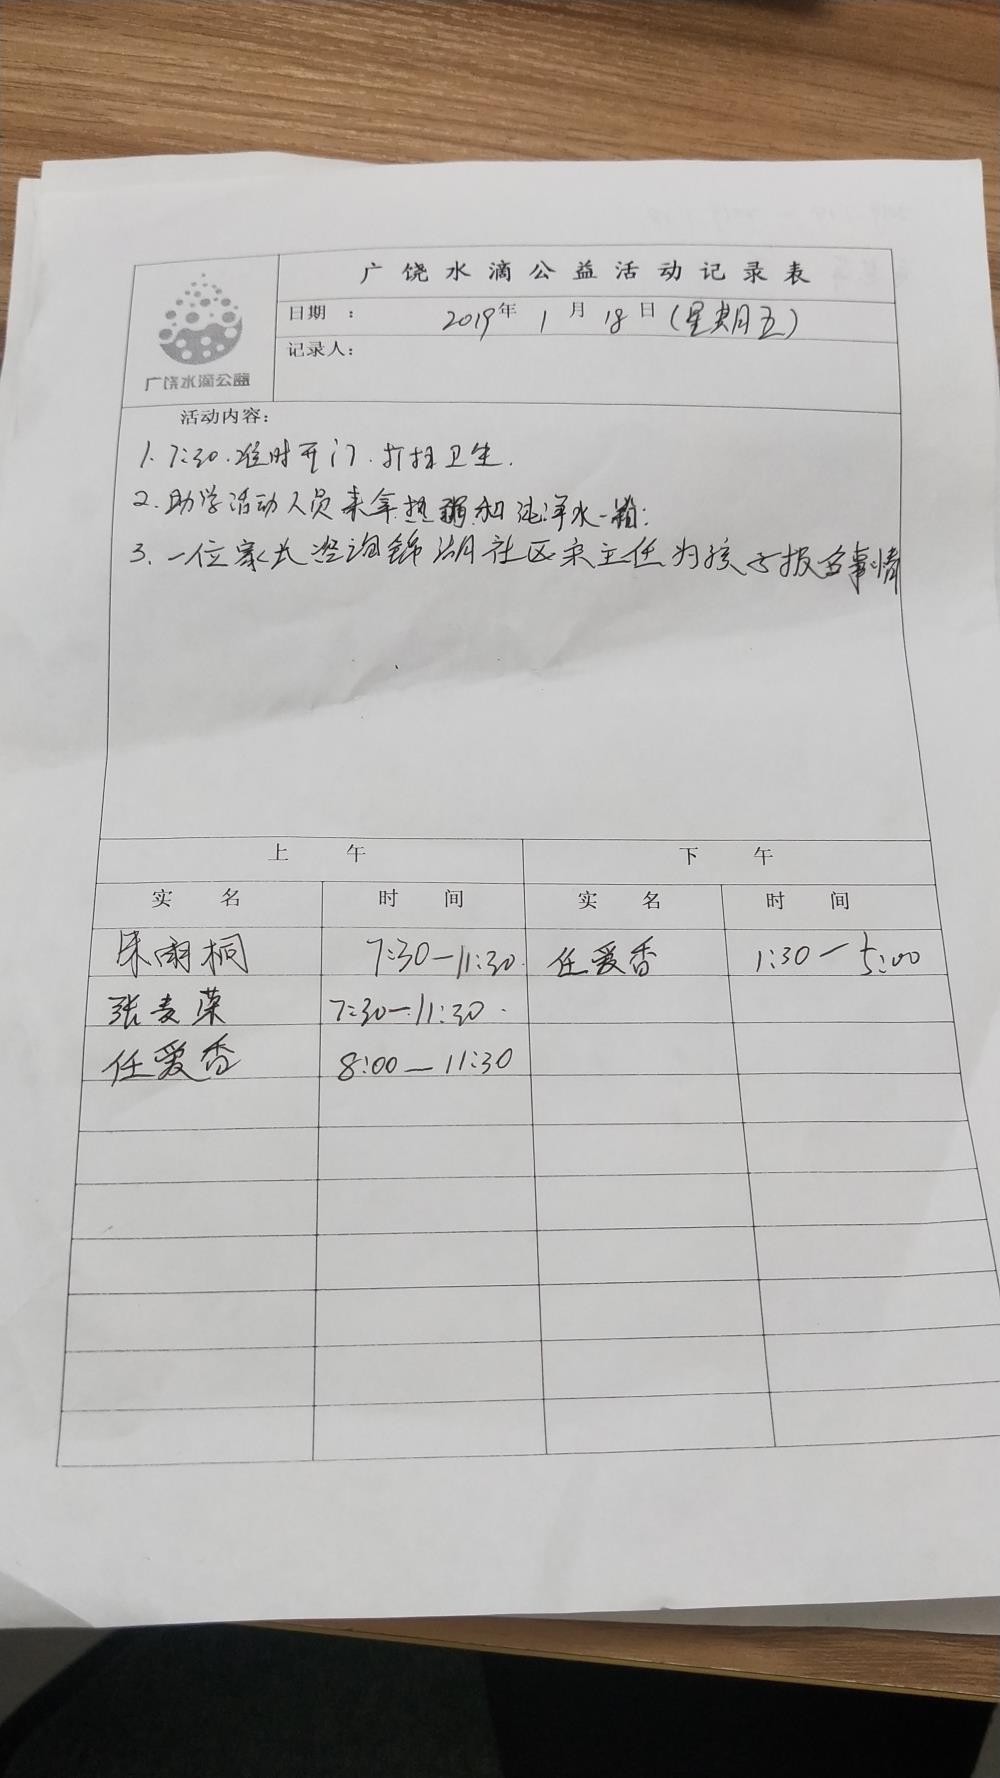 广饶水滴公益活动记录表
广饶水滴公益
日期 : 2019年 1月 18日 (星期五)
记录人:
活动内容:
1. 7:30. 准时开门. 打扫卫生.
2. 助学活动人员来拿热和纯净水一箱;
3. 一位家长咨询锦湖社区宋主任为孩子报名事情
上 午 下 午
实 名 时 间 实 名 时 间
朱雨桐 7:30—11:30. 任爱香 1:30—5:00
张麦荣 7:30—11:30.
任爱香 8:00—11:30